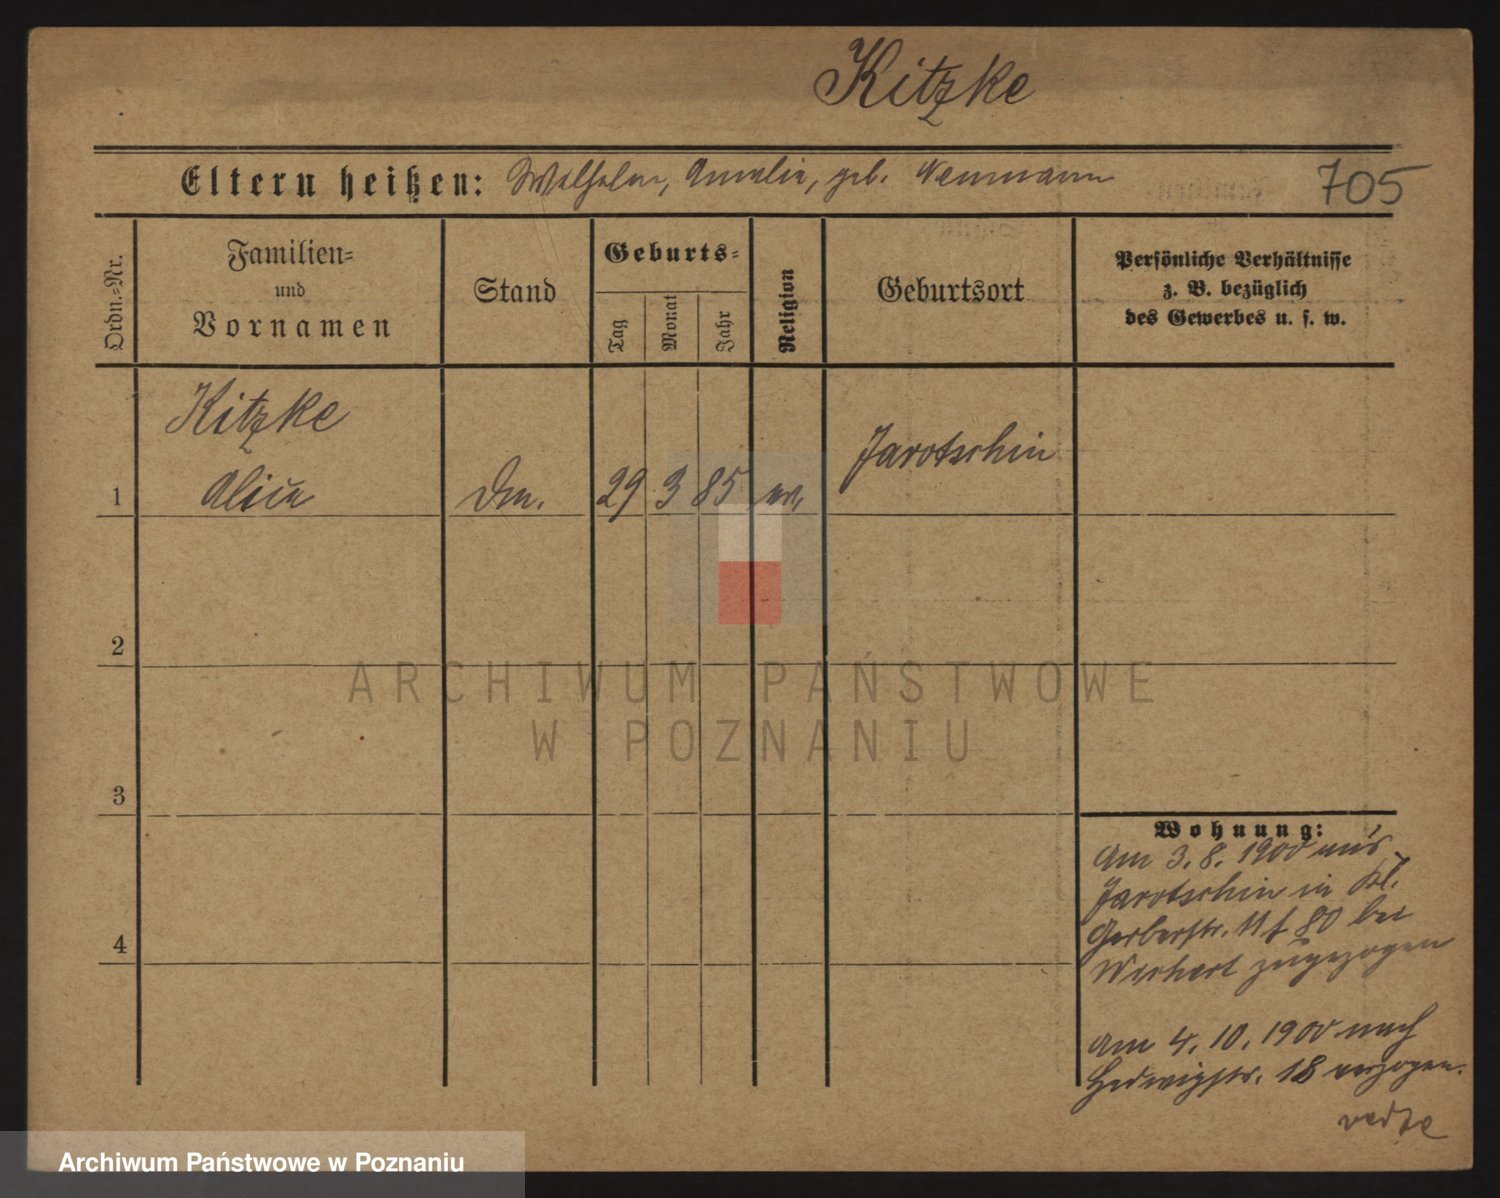 Kitzke
Eltern heißen: Wilhelm, Amalie, geb. Neumann 705
Ordn.-Nr.
Familien-
und
Vornamen
Stand
Geburts-
Tag
Monat
Jahr
Religion
Geburtsort
Persönliche Verhältnisse
z. B. bezüglich
des Gewerbes u. s. w.
Kitzke
1 Alice 29 3 85 ev. Jarotschin
2
3
4
Wohnung:
Am 3. 8. 1900 aus
Jarotschin in Kl.
Gerberstr. 11 bei
zugezogen
Am 4. 10. 1900 nach
Hedwigstr. 18 verzogen.
verte
ARCHIWUM PAŃSTWOWE
W POZNANIU
Archiwum Państwowe w Poznaniu